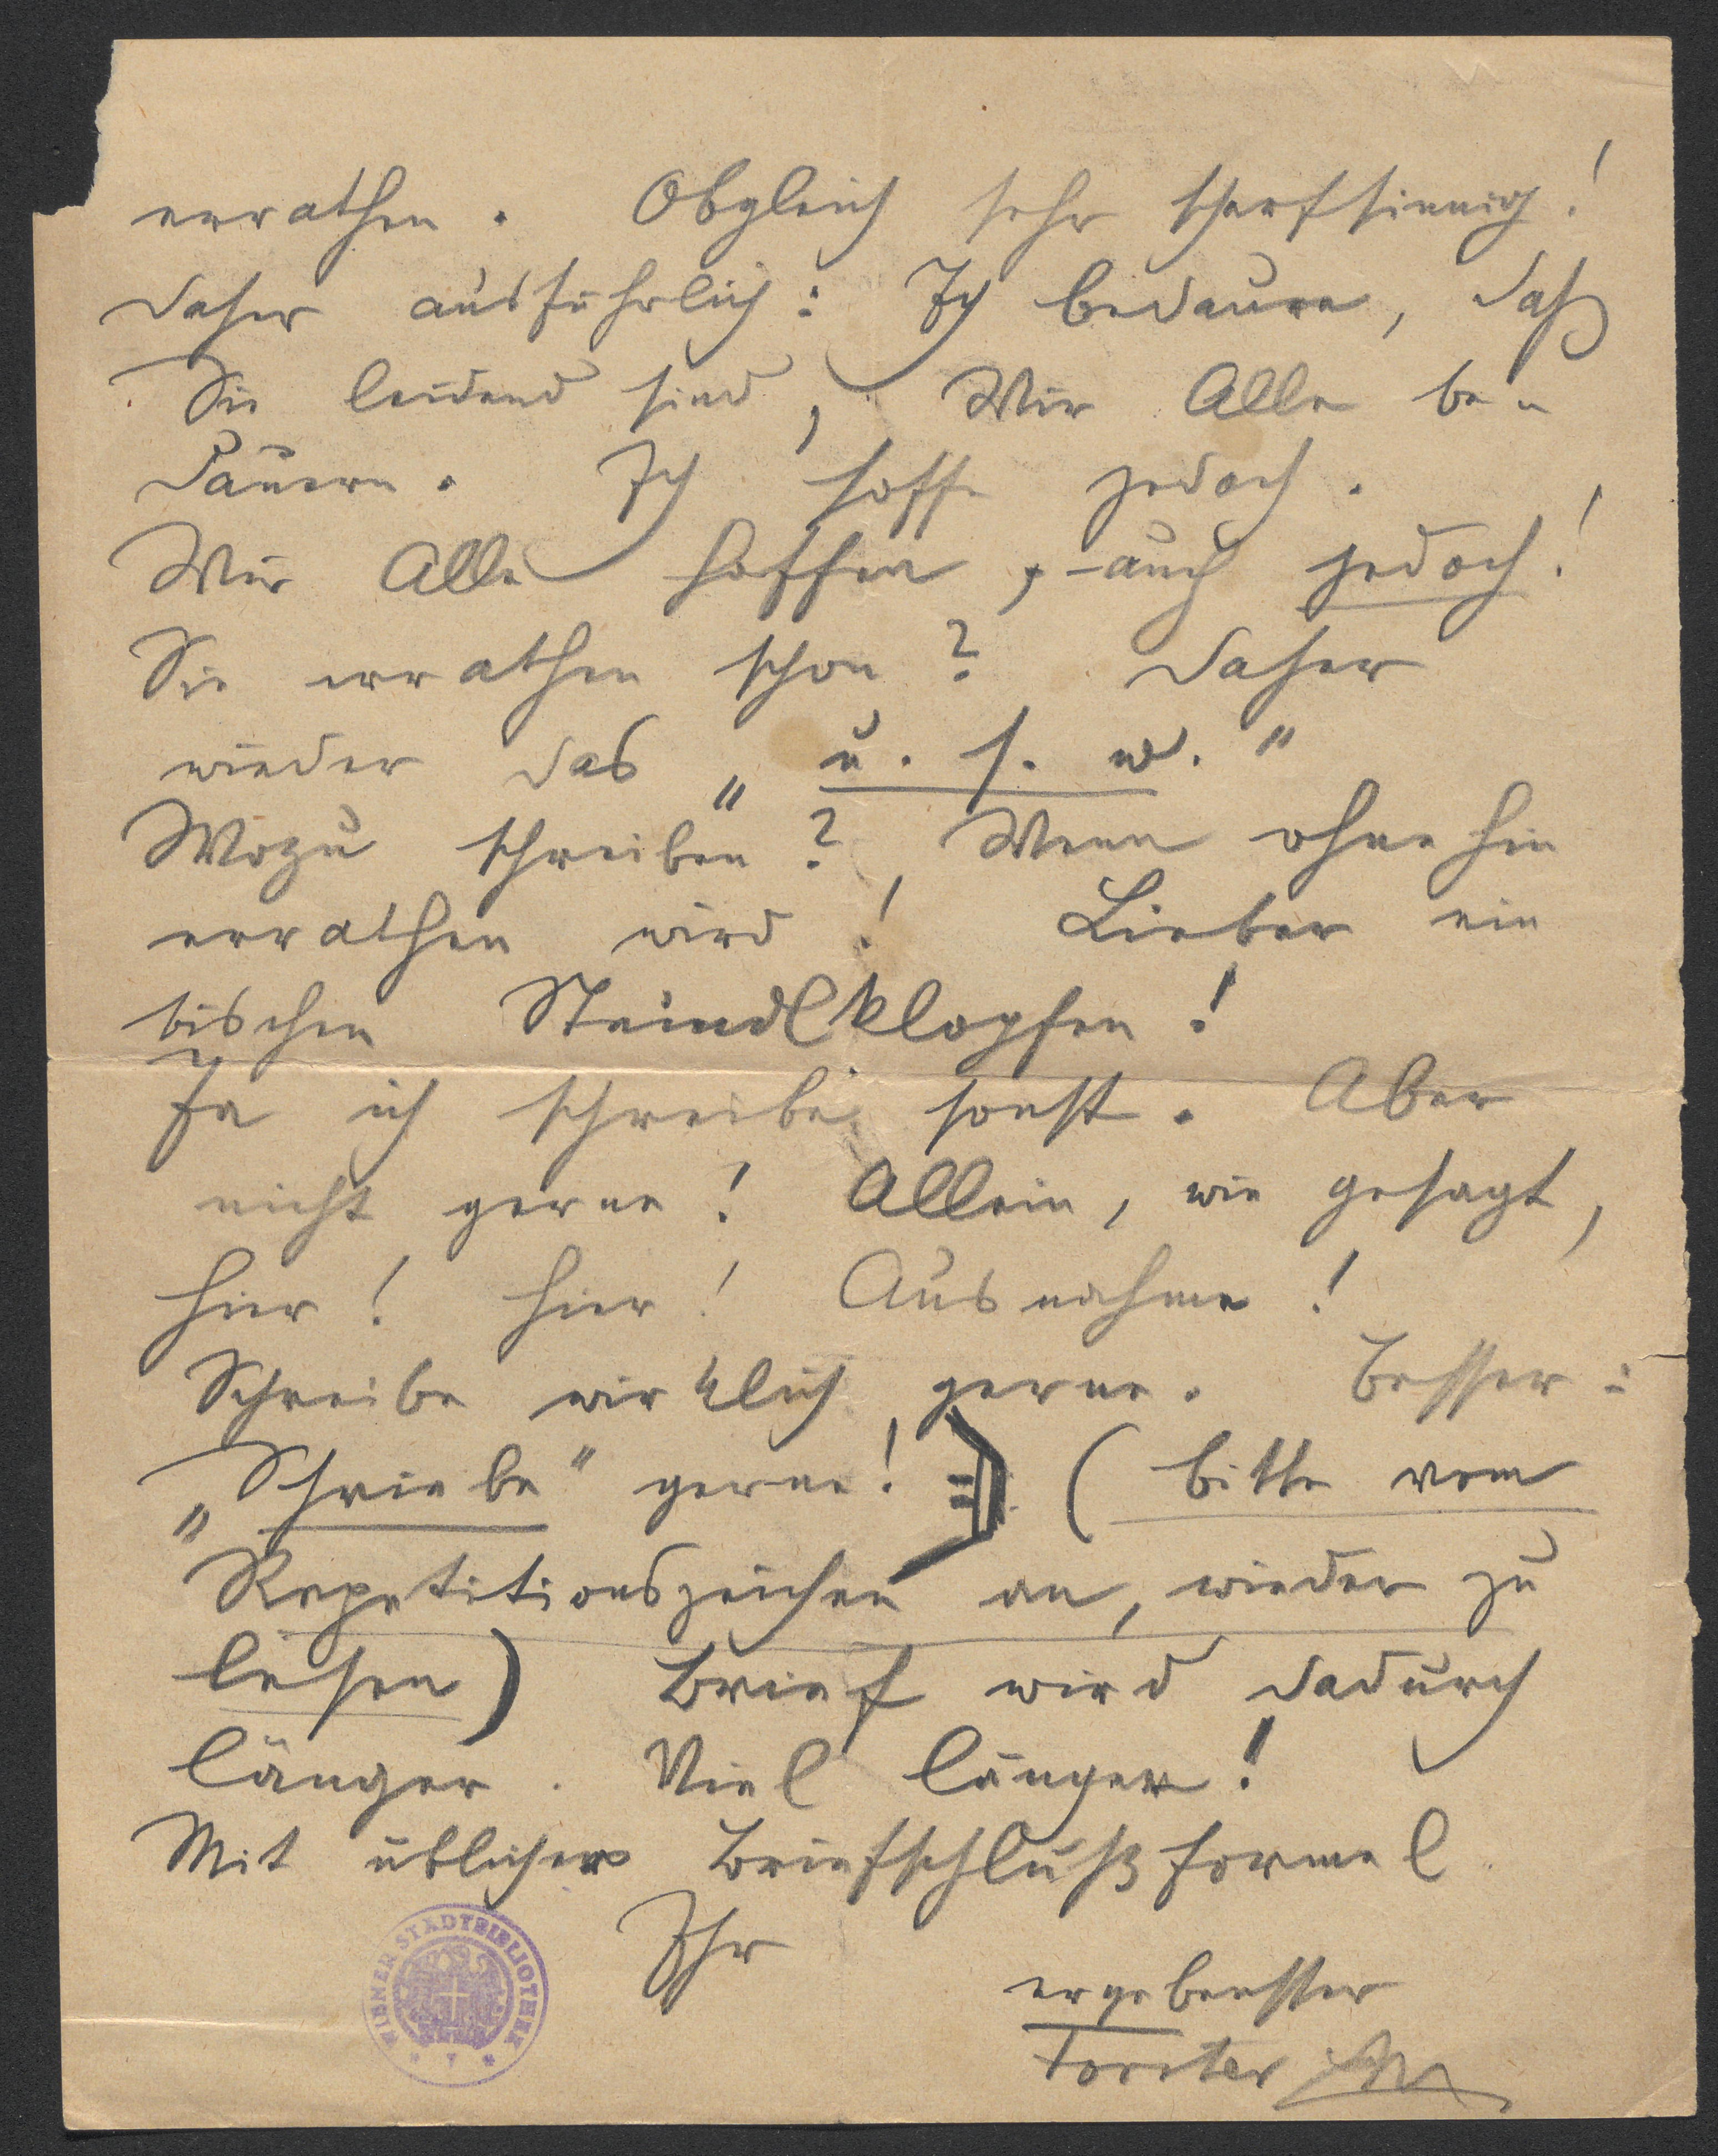 errathen. Obgleich sehr scharfsinnig!
Daher ausführlich: Ich bedaure, daß
Sie leidend sind, Wir Alle be-
dauern. Ich hoffe jedoch.
Wir Alle hoffen, - auch jedoch!
Sie errathen schon? Daher
wieder das „u. s. w."
Wozu schreiben? Wenn ohnehin
errathen wird! Lieber ein
bischen Steindlklopfen!
Ja ich schreibe sonst. Aber
nicht gerne! Allein, wie gesagt,
hier! hier! Ausnahme!
Schreibe wirklich gerne. Besser:
„Schriebe" gerne! (bitte vom
Repetitionszeichen an, wieder zu
lesen) Brief wird dadurch
länger. Viel länger!
Mit üblicher Briefschlußformel
Ihr
ergebenster
WIENER STADTBIBLIOTHEK